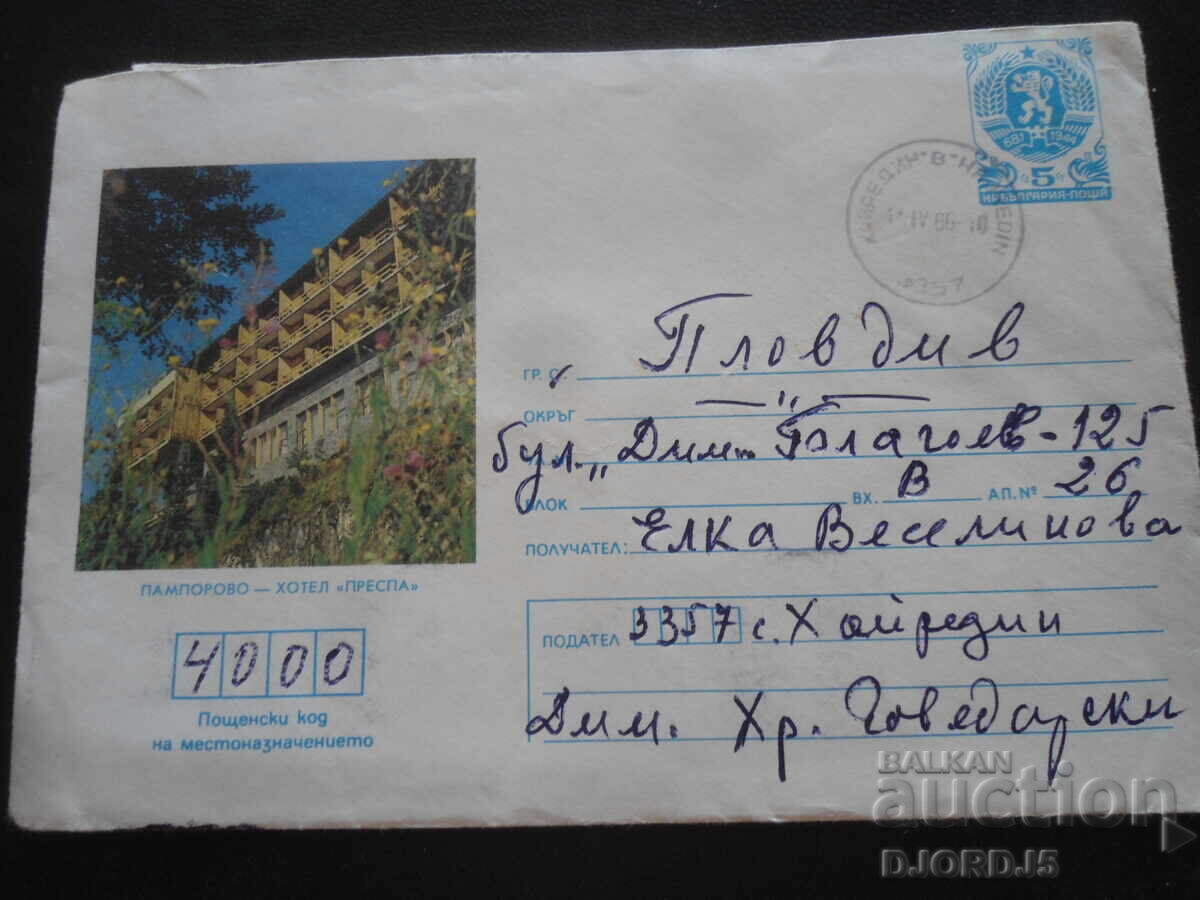 681 1944
5
НР БЪЛГАРИЯ-ПОЩА
IV 86
3357
ГР. С. Пловдив
ОКРЪГ — „ —
бул. „Дим. Благоев - 125
БЛОК ВХ. В АП. № 26
ПОЛУЧАТЕЛ: Елка Веселинова
ПАМПОРОВО — ХОТЕЛ «ПРЕСПА»
ПОДАТЕЛ 3357 с. Хайредин
Дим. Хр. Говедарски
4000
Пощенски код
на местоназначението
BALKAN
auction
DJORDJ5